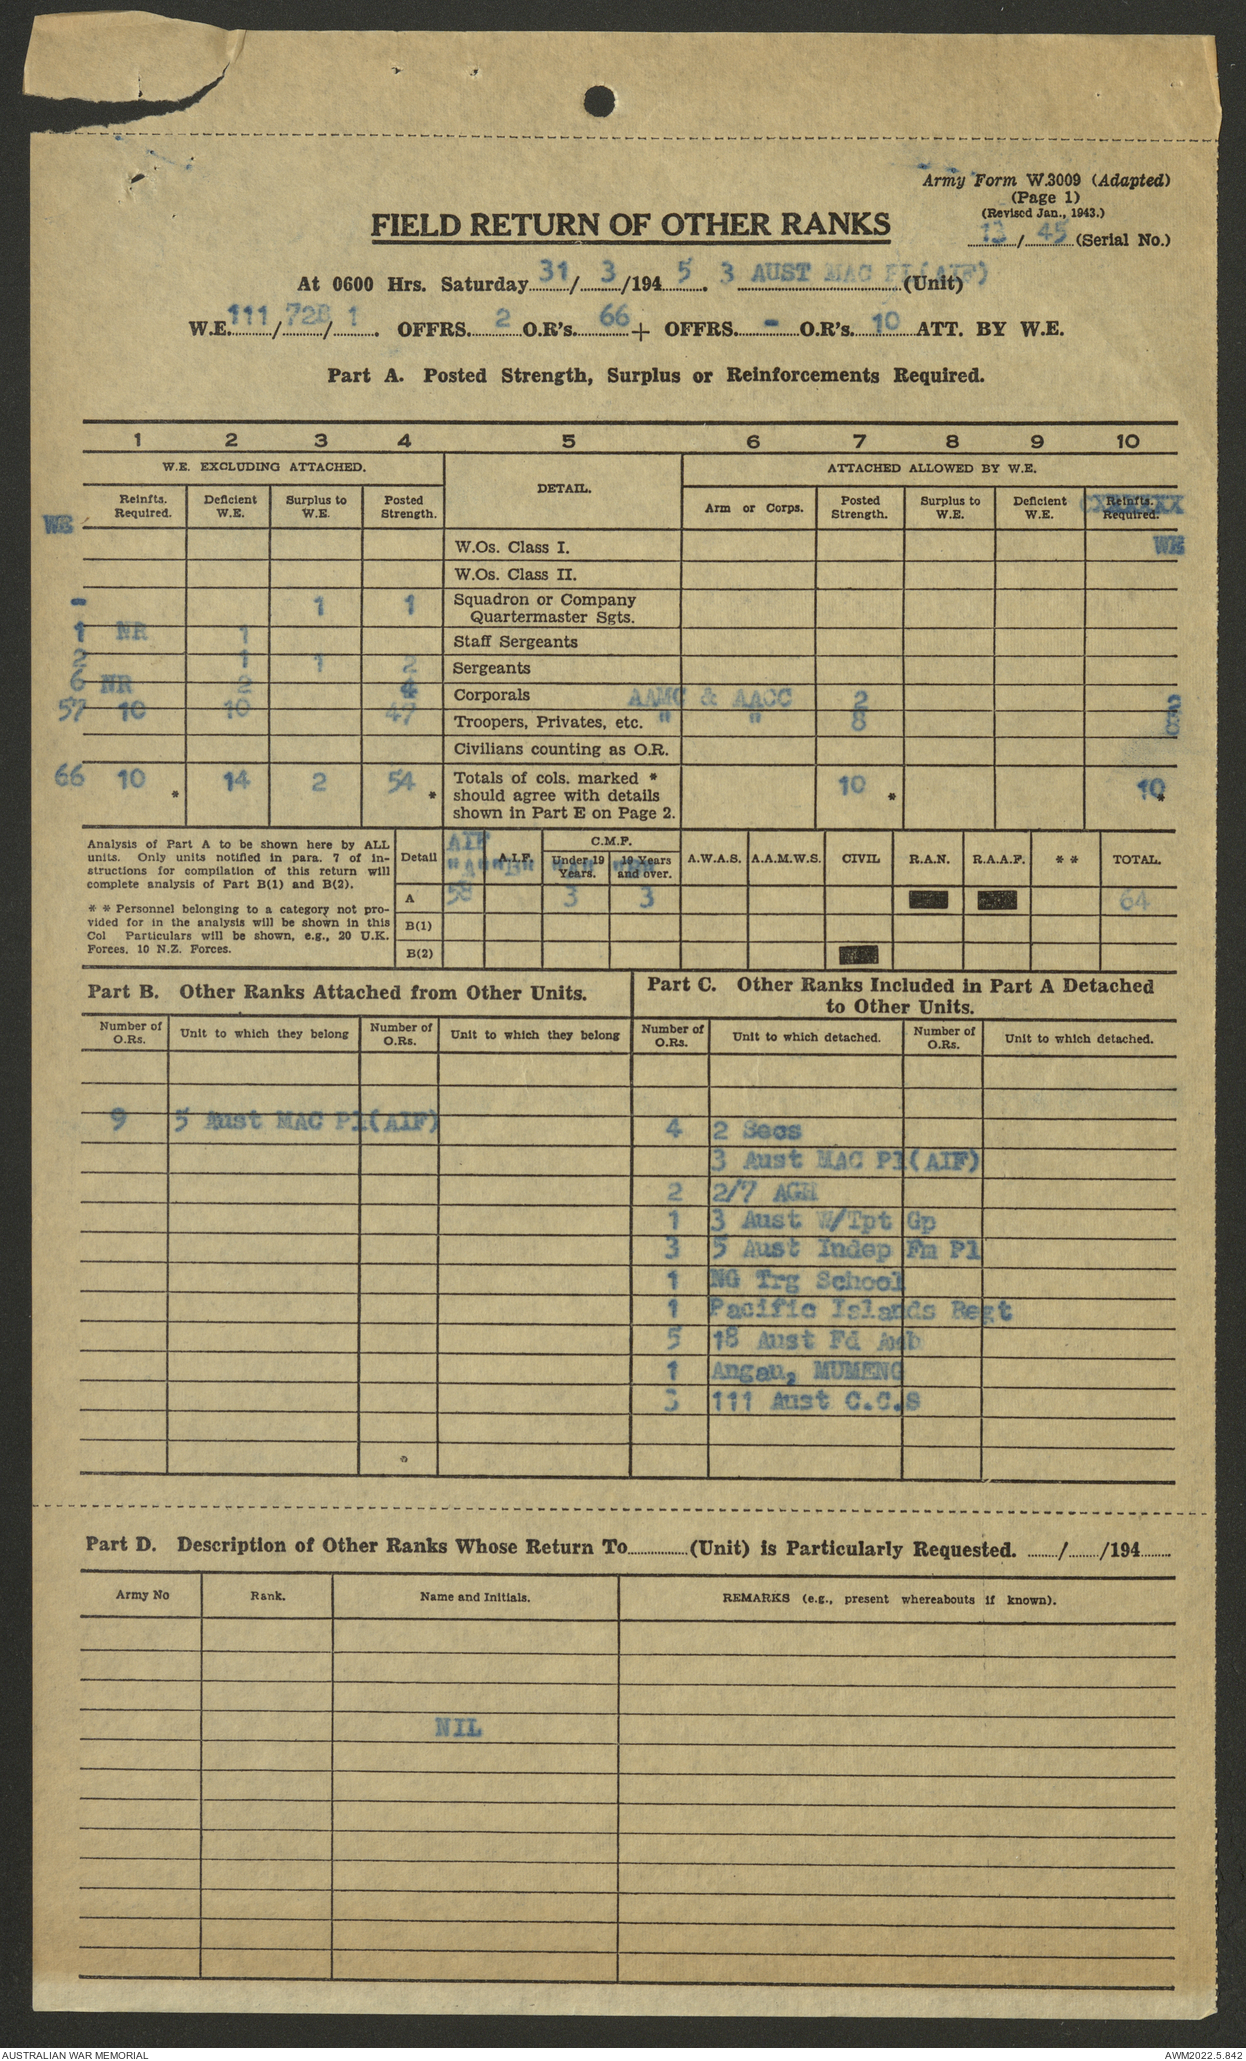 Army Form W.3009 (Adapted)
(Page 1)
(Revised Jan., 1943.)
13 / 45 (Serial No.)
FIELD RETURN OF OTHER RANKS
At 0600 Hrs. Saturday 31 / 3 /194 5 . 3 AUST MAC Pl(AIF) (Unit)
W.E. 111 / 728 / 1 . OFFRS. 2 O.R's. 66 + OFFRS. - O.R's. 10 ATT. BY W.E.
Part A. Posted Strength, Surplus or Reinforcements Required.
1 2 3 4 5 6 7 8 9 10
W.E. EXCLUDING ATTACHED. DETAIL. ATTACHED ALLOWED BY W.E.
WE Reinfts. Required. Deficient W.E. Surplus to W.E. Posted Strength. Arm or Corps. Posted Strength. Surplus to W.E. Deficient W.E. Reinfts. Required.
W.Os. Class I. WE
W.Os. Class II.
- 1 1 Squadron or Company Quartermaster Sgts.
1 NR 1 Staff Sergeants
2 1 1 2 Sergeants
6 NR 2 4 Corporals AAMC & AACC 2 2
57 10 10 47 Troopers, Privates, etc. " " 8 8
Civilians counting as O.R.
66 10 * 14 2 54 * Totals of cols. marked * should agree with details shown in Part E on Page 2. 10 * 10 *
Analysis of Part A to be shown here by ALL
units. Only units notified in para. 7 of in-
structions for compilation of this return will
complete analysis of Part B(1) and B(2).
* * Personnel belonging to a category not pro-
vided for in the analysis will be shown in this
Col Particulars will be shown, e.g., 20 U.K.
Forces, 10 N.Z. Forces.
AIF C.M.F.
Detail "A" "B" A.I.F. Under 19 Years. 19 Years and over. A.W.A.S. A.A.M.W.S. CIVIL R.A.N. R.A.A.F. * * TOTAL.
A 58 3 3 64
B(1)
B(2)
Part B. Other Ranks Attached from Other Units.
Number of O.Rs. Unit to which they belong Number of O.Rs. Unit to which they belong
9 5 Aust MAC Pl(AIF)
Part C. Other Ranks Included in Part A Detached
to Other Units.
Number of O.Rs. Unit to which detached. Number of O.Rs. Unit to which detached.
4 2 Secs
3 Aust MAC Pl(AIF)
2 2/7 AGH
1 3 Aust W/Tpt Gp
3 5 Aust Indep Fm Pl
1 NG Trg School
1 Pacific Islands Regt
5 18 Aust Fd Amb
1 Angau, MUMENG
3 111 Aust C.C.S
Part D. Description of Other Ranks Whose Return To (Unit) is Particularly Requested. / /194
Army No Rank. Name and Initials. REMARKS (e.g., present whereabouts if known).
NIL
AUSTRALIAN WAR MEMORIAL
AWM2022.5.842